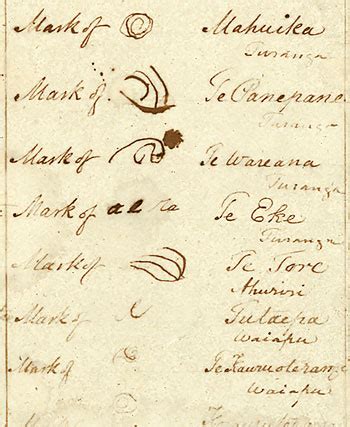 Mark of Mahuika
Turanga
Mark of Te Panepane
Turanga
Mark of Te Wareana
Turanga
Mark of Te Eke
Turanga
Mark of Te Tore
Ahuriri
Mark of Tutaepa
Waiapu
Mark of
Waiapu
Mark of